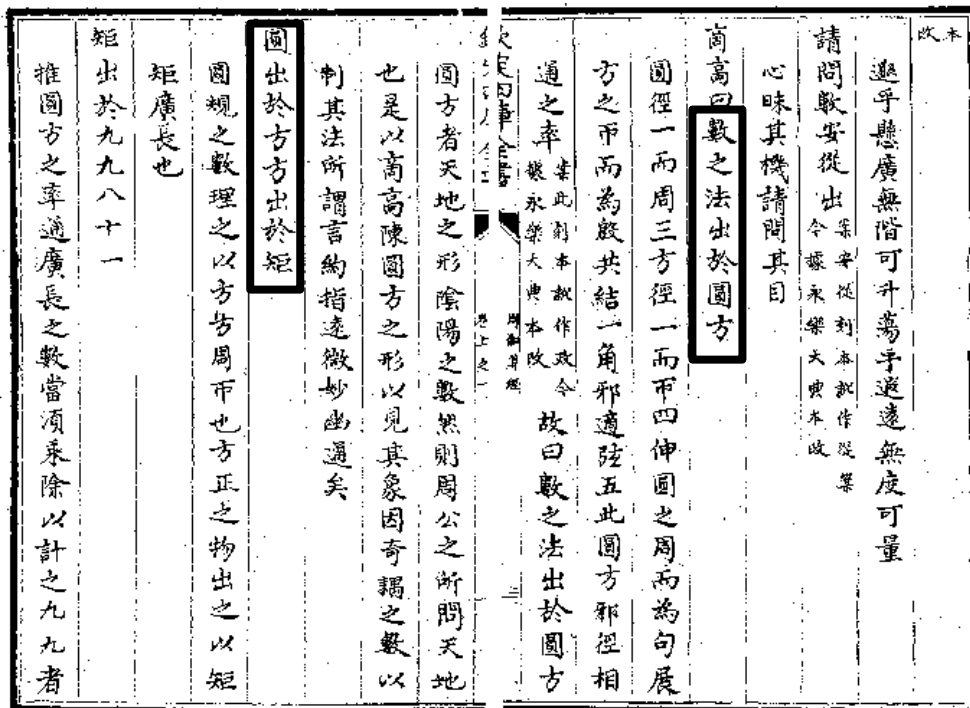 本
改
邈乎懸廣無階可升蕩乎遐遠無度可量
請問數安從出
案安從刻本訛作從案
今據永樂大典本改
心昧其機請問其目
商高曰數之法出於圓方
圓徑一而周三方徑一而帀四伸圓之周而為句展
方之帀而為股共結一角邪適弦五此圓方邪徑相
通之率
案此刻本訛作政今
據永樂大典本改
故曰數之法出於圓方
欽定四庫全書
周髀算經
卷上之一
圓方者天地之形陰陽之數然則周公之所問天地
也是以商高陳圓方之形以見其象因奇耦之數以
制其法所謂言約指遠微妙幽通矣
圓出於方方出於矩
圓規之數理之以方方周帀也方正之物出之以矩
矩廣長也
矩出於九九八十一
推圓方之率通廣長之數當須乘除以計之九九者